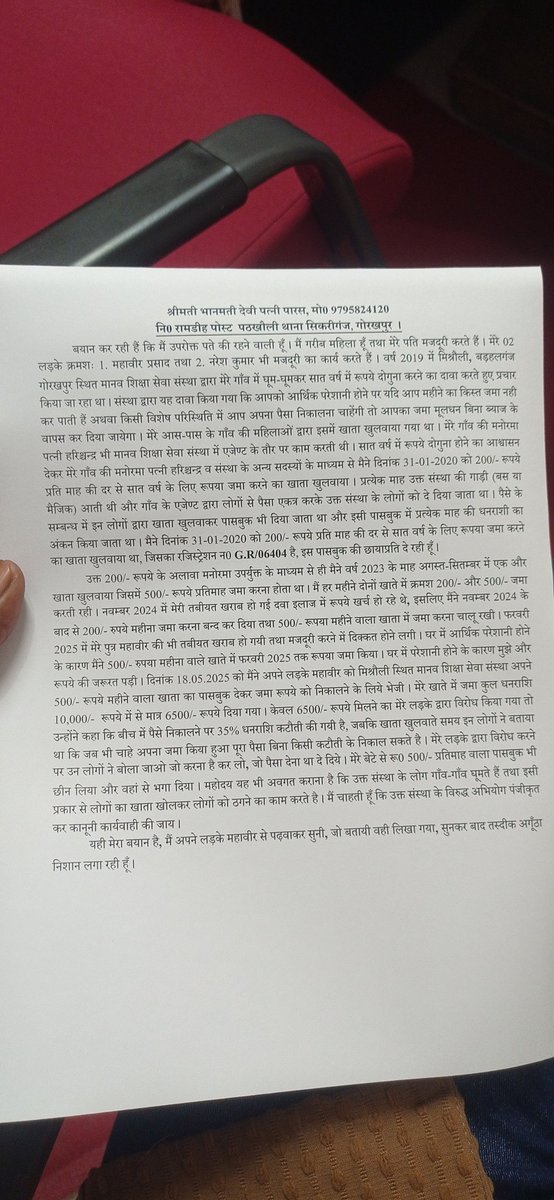 श्रीमती भानमती देवी पत्नी पारस, मो0 9795824120
नि0 रामडीह पोस्ट पठखौली थाना सिकरीगंज, गोरखपुर ।
बयान कर रही हैं कि मैं उपरोक्त पते की रहने वाली हूँ। मैं गरीब महिला हूँ तथा मेरे पति मजदूरी करते हैं । मेरे 02
लड़के क्रमशः 1. महावीर प्रसाद तथा 2. नरेश कुमार भी मजदूरी का कार्य करते हैं । वर्ष 2019 में मिश्रौली, बड़हलगंज
गोरखपुर स्थित मानव शिक्षा सेवा संस्था द्वारा मेरे गाँव में घूम-घूमकर सात वर्ष में रूपये दोगुना करने का दावा करते हुए प्रचार
किया जा रहा था । संस्था द्वारा यह दावा किया गया कि आपको आर्थिक परेशानी होने पर यदि आप महीने का किस्त जमा नही
कर पाती हैं अथवा किसी विशेष परिस्थिति में आप अपना पैसा निकालना चाहेंगी तो आपका जमा मूलधन बिना ब्याज के
वापस कर दिया जायेगा । मेरे आस-पास के गाँव की महिलाओं द्वारा इसमें खाता खुलवाया गया था । मेरे गाँव की मनोरमा
पत्नी हरिश्चन्द्र भी मानव शिक्षा सेवा संस्था में एजेण्ट के तौर पर काम करती थी । सात वर्ष में रूपये दोगुना होने का आश्वासन
देकर मेरे गाँव की मनोरमा पत्नी हरिश्चन्द्र व संस्था के अन्य सदस्यों के माध्यम से मैने दिनांक 31-01-2020 को 200/- रूपये
प्रति माह की दर से सात वर्ष के लिए रूपया जमा करने का खाता खुलवाया । प्रत्येक माह उक्त संस्था की गाड़ी (बस या
मैजिक) आती थी और गाँव के एजेण्ट द्वारा लोगों से पैसा एकत्र करके उक्त संस्था के लोगों को दे दिया जाता था । पैसे के
सम्बन्ध में इन लोगों द्वारा खाता खुलवाकर पासबुक भी दिया जाता था और इसी पासबुक में प्रत्येक माह की धनराशी का
अंकन किया जाता था । मैने दिनांक 31-01-2020 को 200/- रूपये प्रति माह की दर से सात वर्ष के लिए रूपया जमा करने
का खाता खुलवाया था, जिसका रजिस्ट्रेशन न0 G.R/06404 है, इस पासबुक की छायाप्रति दे रही हूँ ।
उक्त 200/- रूपये के अलावा मनोरमा उपर्युक्त के माध्यम से ही मैने वर्ष 2023 के माह अगस्त-सितम्बर में एक और
खाता खुलवाया जिसमें 500/- रूपये प्रतिमाह जमा करना होता था । मैं हर महीने दोनों खाते में क्रमश 200/- और 500/- जमा
करती रही । नवम्बर 2024 में मेरी तबीयत खराब हो गई दवा इलाज में रूपये खर्च हो रहे थे, इसलिए मैंने नवम्बर 2024 के
बाद से 200/- रुपये महीना जमा करना बन्द कर दिया तथा 500/- रूपया महीना वाला खाता में जमा करना चालू रखी । फरवरी
2025 में मेरे पुत्र महावीर की भी तबीयत खराब हो गयी तथा मजदूरी करने में दिक्कत होने लगी । घर में आर्थिक परेशानी होने
के कारण मैंने 500/- रुपया महीना वाले खाते में फरवरी 2025 तक रूपया जमा किया । घर में परेशानी होने के कारण मुझे और
रूपये की जरूरत पड़ी । दिनांक 18.05.2025 को मैंने अपने लड़के महावीर को मिश्रौली स्थित मानव शिक्षा सेवा संस्था अपने
500/- रूपये महीने वाला खाता का पासबुक देकर जमा रूपये को निकालने के लिए भेजी । मेरे खाते में जमा कुल धनराशि
10,000/- रूपये में से मात्र 6500/- रूपये दिया गया । केवल 6500/- रूपये मिलने का मेरे लड़के द्वारा विरोध किया गया तो
उन्होंने कहा कि बीच में पैसे निकालने पर 35% धनराशि कटौती की गयी है, जबकि खाता खुलवाते समय इन लोगों ने बताया
था कि जब भी चाहे अपना जमा किया हुआ पूरा पैसा बिना किसी कटौती के निकाल सकते है । मेरे लड़के द्वारा विरोध करने
पर उन लोगों ने बोला जाओ जो करना है कर लो, जो पैसा देना था दे दिये । मेरे बेटे से रू0 500/- प्रतिमाह वाला पासबुक भी
छीन लिया और वहां से भगा दिया । महोदय यह भी अवगत कराना है कि उक्त संस्था के लोग गाँव-गाँव घूमते हैं तथा इसी
प्रकार से लोगों का खाता खोलकर लोगों को ठगने का काम करते है । मैं चाहती हूँ कि उक्त संस्था के विरुद्ध अभियोग पंजीकृत
कर कानूनी कार्यवाही की जाय ।
यही मेरा बयान है, मैं अपने लड़के महावीर से पढ़वाकर सुनी, जो बतायी वही लिखा गया, सुनकर बाद तस्दीक अगूँठा
निशान लगा रही हूँ ।